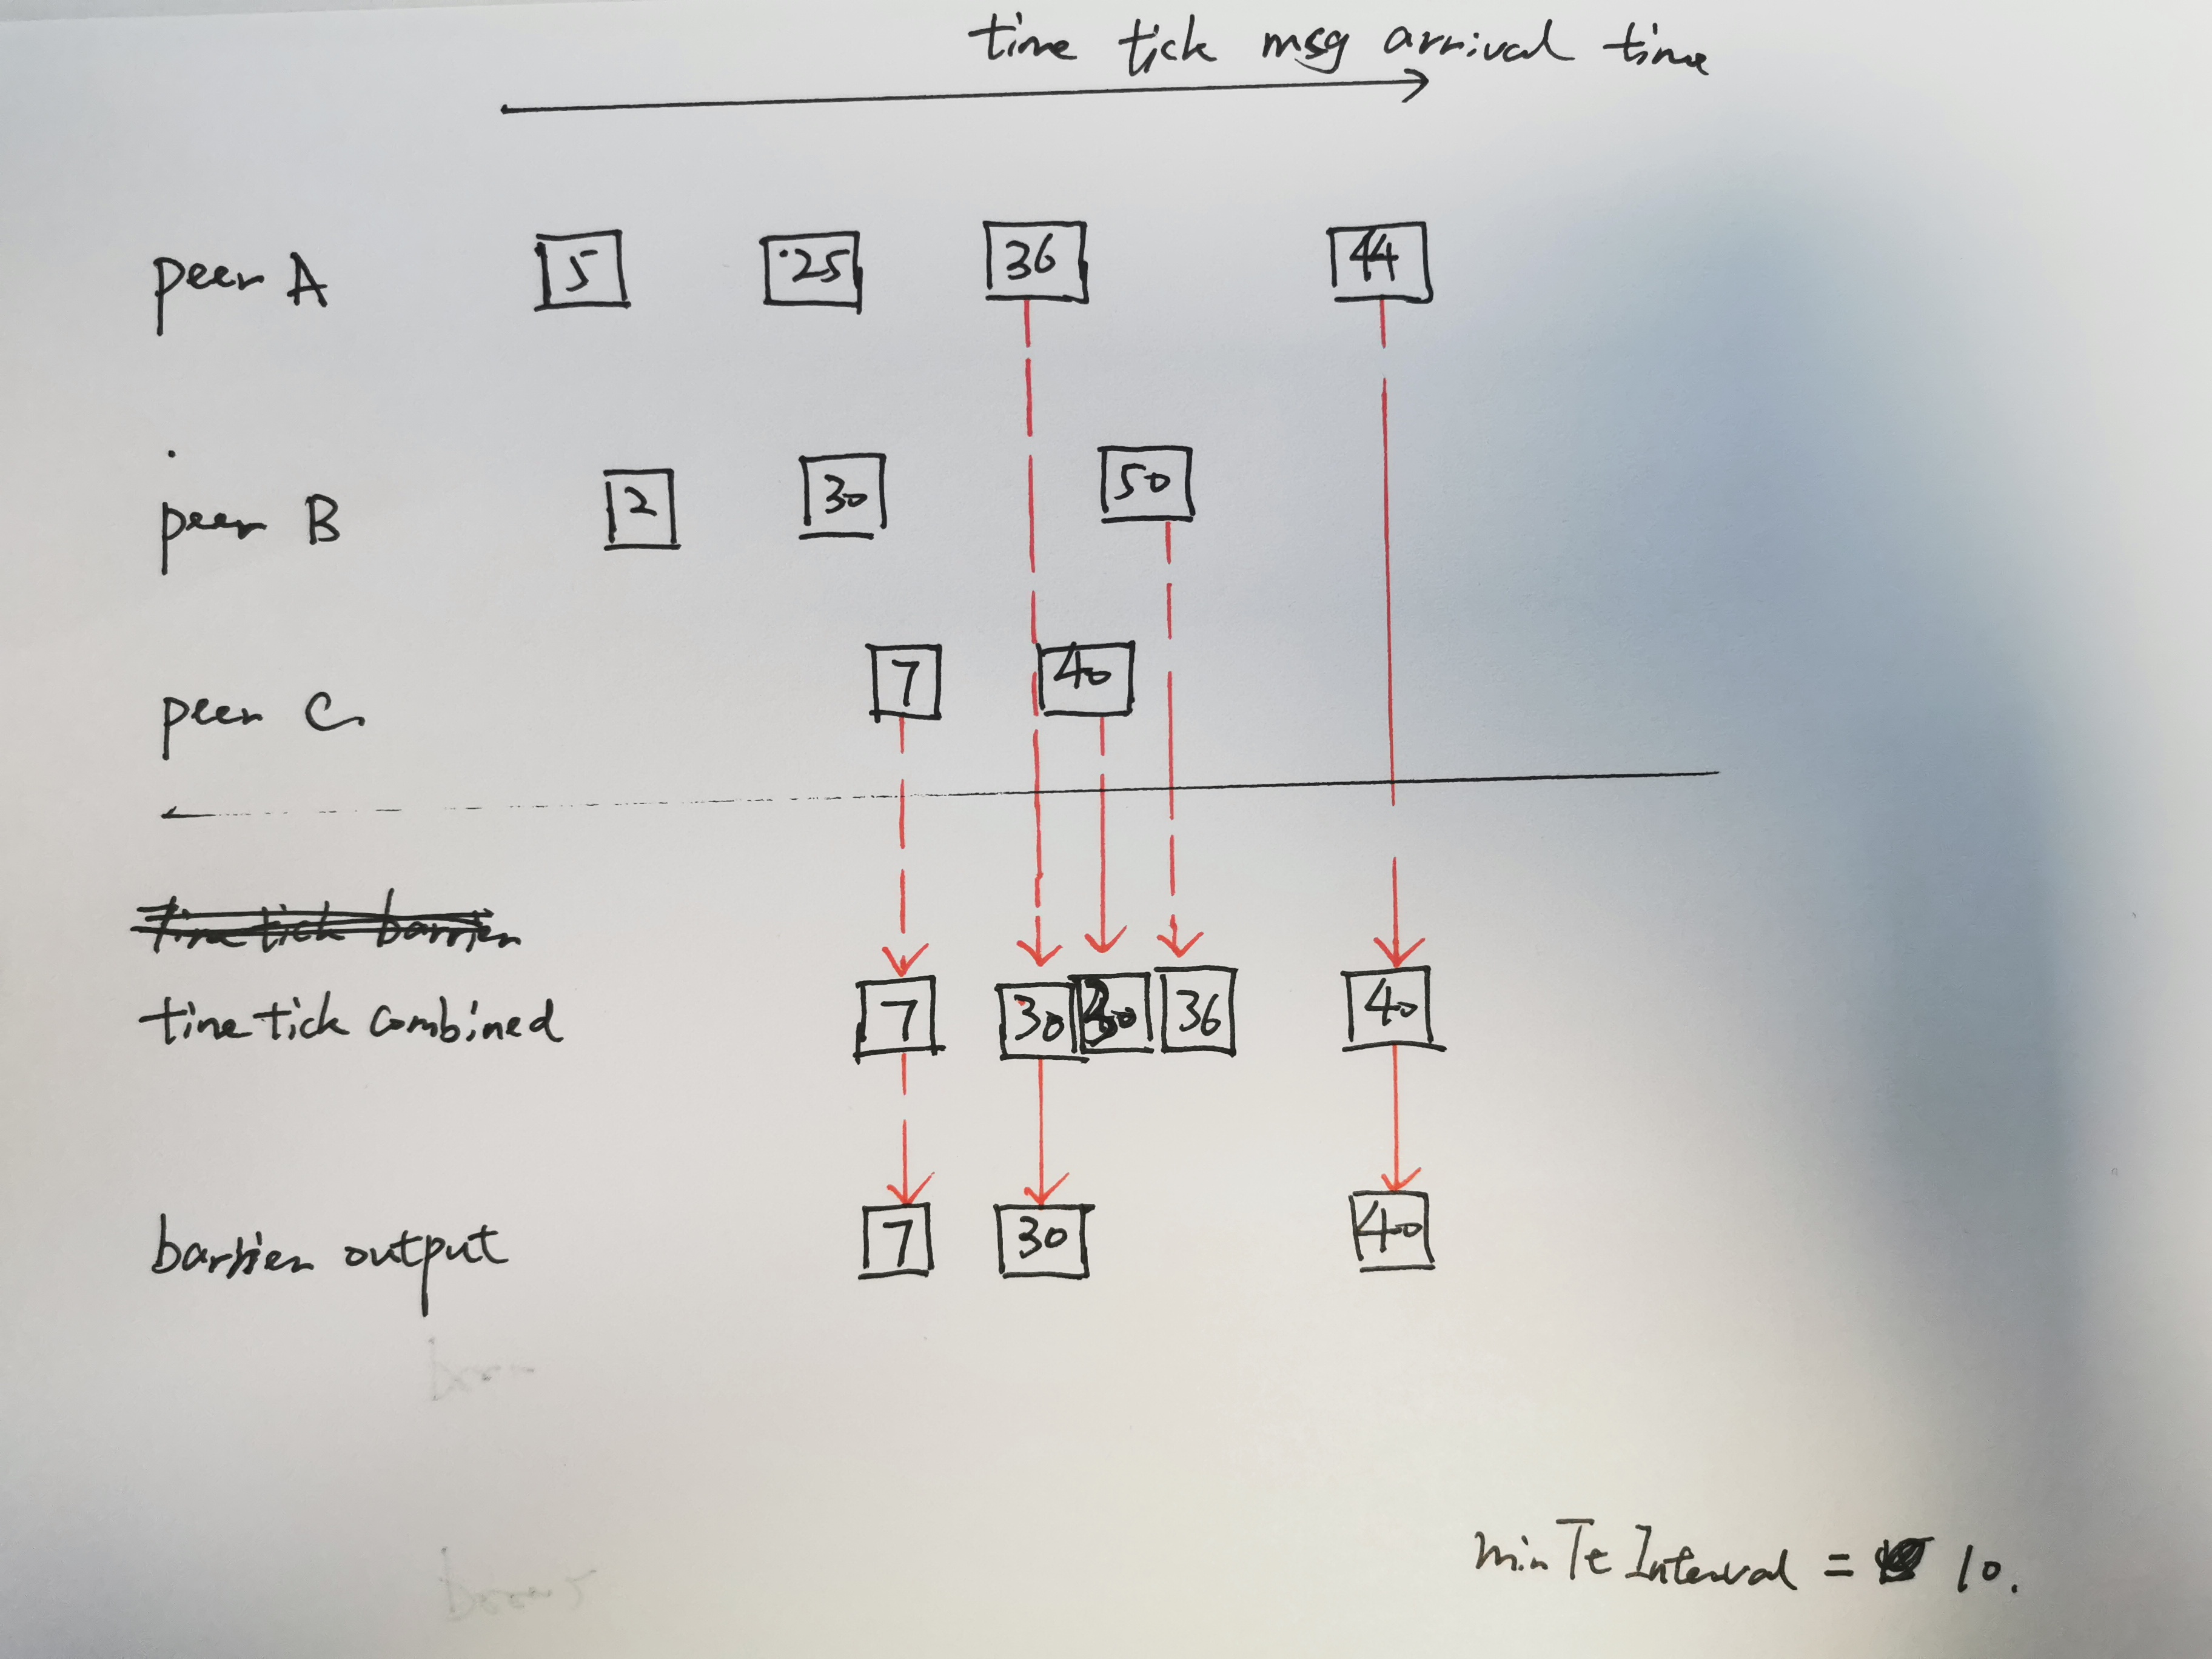 time tick msg arrival time
peer A 5 25 36 44
peer B 2 30 50
peer C 7 40
time tick barrier
time tick combined 7 30 30 36 40
barrier output 7 30 40
minTtInterval = 10.